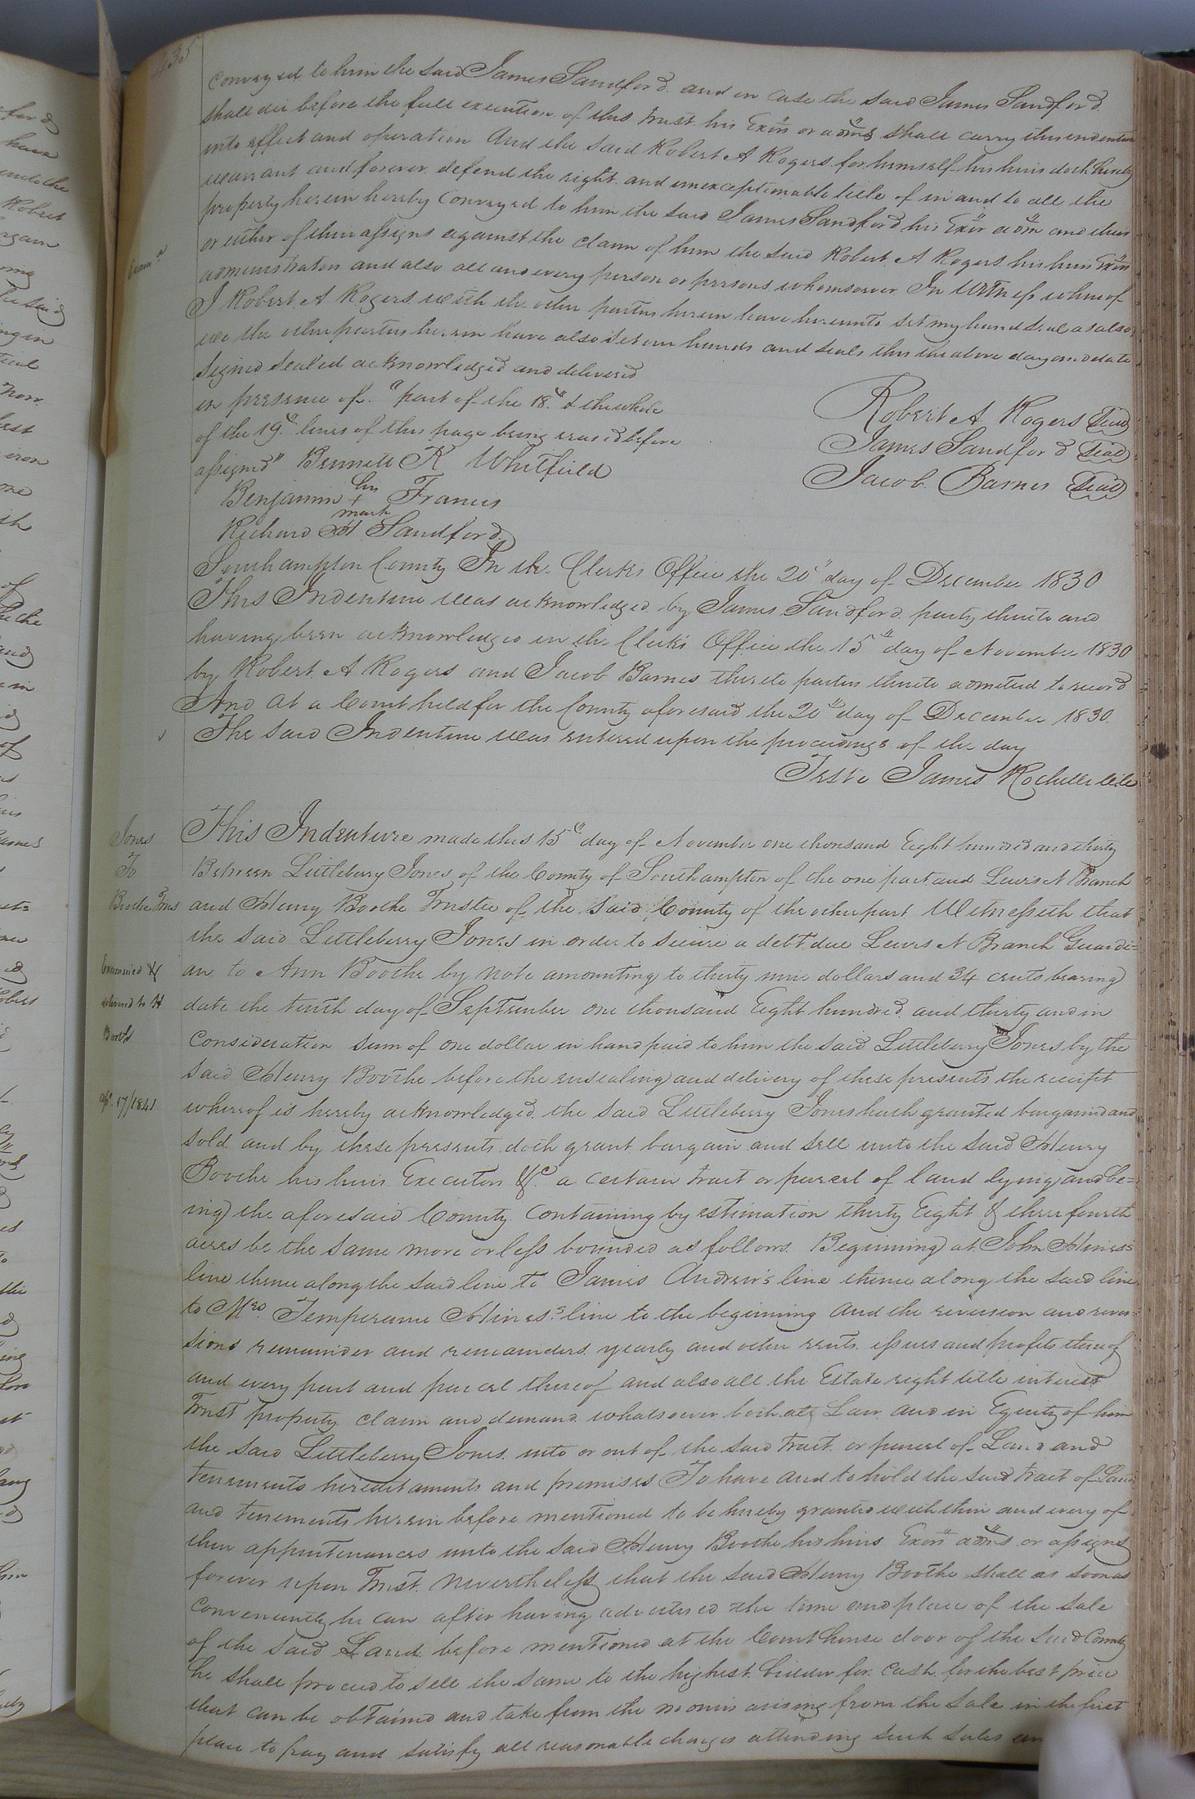 435
conveyed to him the said James Sandford and in case the said James Sandford
shall die before the full execution of this trust his Exōrs or admōrs shall carry this indenture
into effect and operation And the said Robert A Rogers for himself his heirs doth hereby
warrant and forever defend the right and unexceptionable title of in and to all the
property herein hereby conveyed to him the said James Sandford his Exōr admōr and their
or either of their assigns against the claim of him the said Robert A Rogers his heirs Exōrs
administrators and also all and every person or persons whomsoever In Witness whereof
I Robert A Rogers with the other parties herein have hereunto set my hand & seal as also
we the other parties herein have also set our hands and seals this the above day and date
Signed sealed acknowledged and delivered
in presence of "part of the 18th & the whole
of the 19th lines of this page being erased before
assigned" Bennett R Whitfield
Benjamin his + mark Francis
Richard H Sandford
Robert A Rogers Seal
James Sandford Seal
Jacob Barnes Seal
Southampton County In the Clerk's Office the 20th day of December 1830
This Indenture was acknowledged by James Sandford party thereto and
having been acknowledged in the Clerk's Office the 15th day of November 1830
by Robert A Rogers and Jacob Barnes thereto parties thereto admitted to record
And at a Court held for the County aforesaid the 20th day of December 1830
The said Indenture was entered upon the proceedings of the day
Teste James Rochelle
Jones
To
Boothe Trus
Examined &
delivered to H
Booth
17/1841
This Indenture made this 15th day of November one thousand Eight hundred and thirty
Between Littleberry Jones of the County of Southampton of the one part and Lewis N Branch
and Henry Boothe Trustee of the said County of the other part Witnesseth that
the said Littleberry Jones in order to secure a debt due Lewis N Branch Guardi=
an to Ann Boothe by note amounting to thirty nine dollars and 34 cents bearing
date the tenth day of September one thousand Eight hundred and thirty and in
consideration sum of one dollar in hand paid to him the said Littleberry Jones by the
said Henry Boothe before the ensealing and delivery of these presents the receipt
whereof is hereby acknowledged the said Littleberry Jones hath granted bargained and
sold and by these presents doth grant bargain and sell unto the said Henry
Boothe his heirs Executors &c a certain tract or parcel of land lying and be=
ing the aforesaid County containing by estimation thirty Eight & three fourth
acres be the same more or less bounded as follows. Beginning at John Hines's
line thence along the said line to James Andrew's line thence along the said line
to Mrs Temperance Hines's line to the beginning And the reversion and rever=
sions remainder and remainders yearly and other rents issues and profits thereof
and every part and parcel thereof and also all the Estate right title interest
Trust property claim and demand whatsoever both at Law and in Equity of him
the said Littleberry Jones into or out of the said tract or parcel of Land and
tenements hereditaments and premises To have and to hold the said tract of Land
and tenements herein before mentioned to be hereby granted with their and every of
their appurtenances unto the said Henry Boothe his heirs Exōrs admōrs or assigns
forever upon Trust nevertheless that the said Henry Boothe shall as soon as
conveniently he can after having advertised the time and place of the sale
of the said Land before mentioned at the Courthouse door of the said County
he shall proceed to sell the same to the highest bidder for cash for the best price
that can be obtained and take from the monies arising from the Sale in the first
place to pay and satisfy all reasonable charges attending such sales